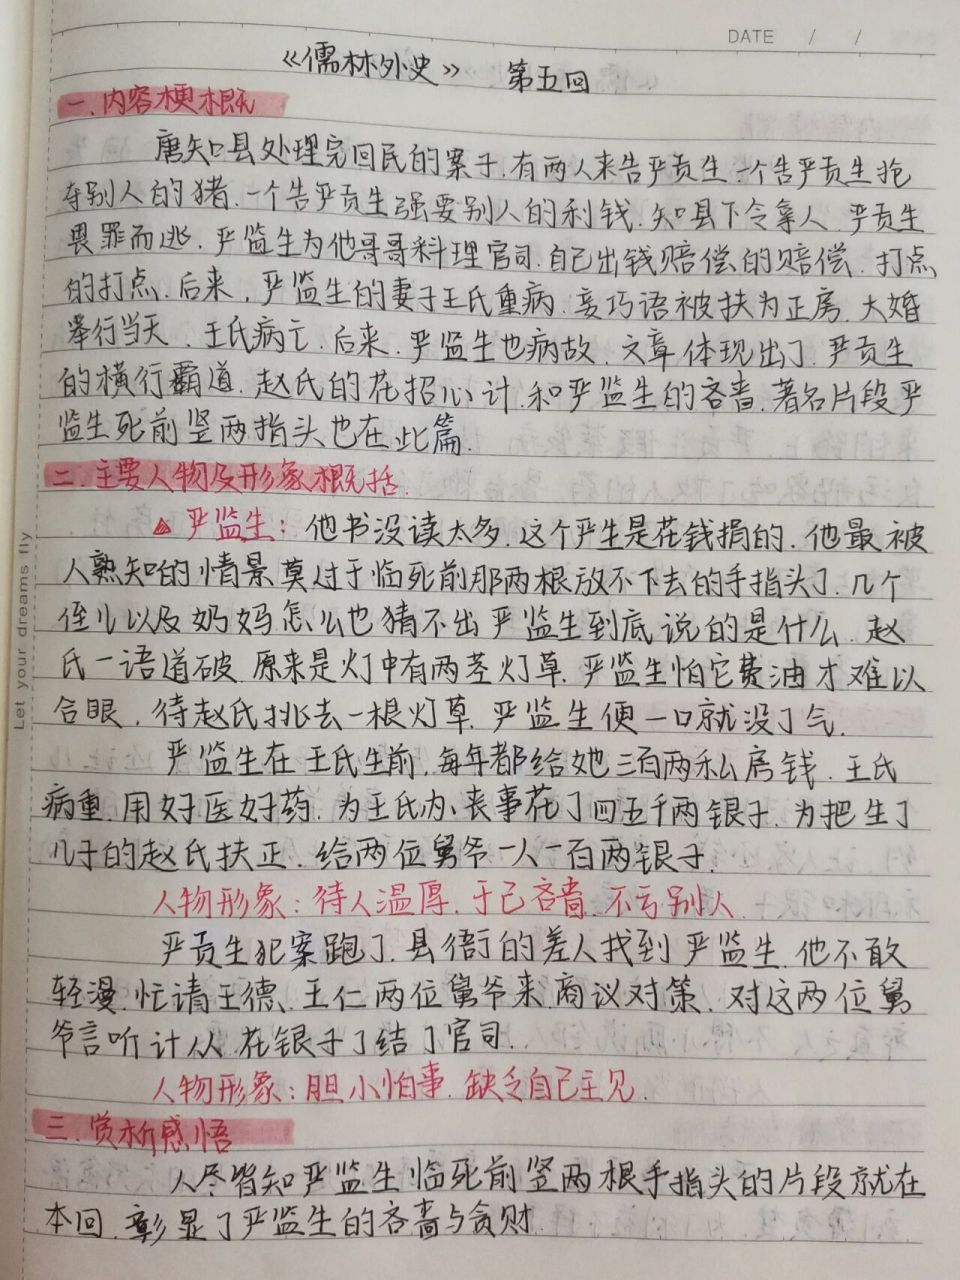 DATE / /
《儒林外史》 第五回
一.内容梗概
唐知县处理完回民的案子.有两人来告严贡生.一个告严贡生抢
夺别人的猪.一个告严贡生强要别人的利钱.知县下令拿人.严贡生
畏罪而逃.严监生为他哥哥料理官司.自己出钱赔偿的赔偿.打点
的打点.后来,严监生的妻子王氏重病.妾巧语被扶为正房.大婚
举行当天、王氏病亡.后来.严监生也病故.文章体现出了.严贡生
的横行霸道.赵氏的花招心计.和严监生的吝啬.著名片段严
监生死前竖两指头也在此篇.
二.主要人物及形象概括.
▲严监生:他书没读太多.这个严生是花钱捐的.他最被
人熟知的情景莫过于临死前那两根放不下去的手指头了.几个
侄儿以及奶妈怎么也猜不出严监生到底说的是什么.赵
氏一语道破.原来是灯中有两茎灯草.严监生怕它费油才难以
合眼.待赵氏挑去一根灯草.严监生便一口就没了气.
严监生在王氏生前,每年都给她三百两私房钱.王氏
病重.用好医好药.为王氏办丧事花了四五千两银子.为把生了
儿子的赵氏扶正.给两位舅爷一人一百两银子.
人物形象:待人温厚.于己吝啬.不亏别人.
严贡生犯案跑了.县衙的差人找到严监生.他不敢
轻漫.忙请王德、王仁两位舅爷来商议对策.对这两位舅
爷言听计从.花银子了结了官司.
人物形象:胆小怕事.缺乏自己主见.
三.赏析感悟
人尽皆知严监生临死前竖两根手指头的片段就在
本回.彰显了严监生的吝啬与贪财.
Let your dreams fly